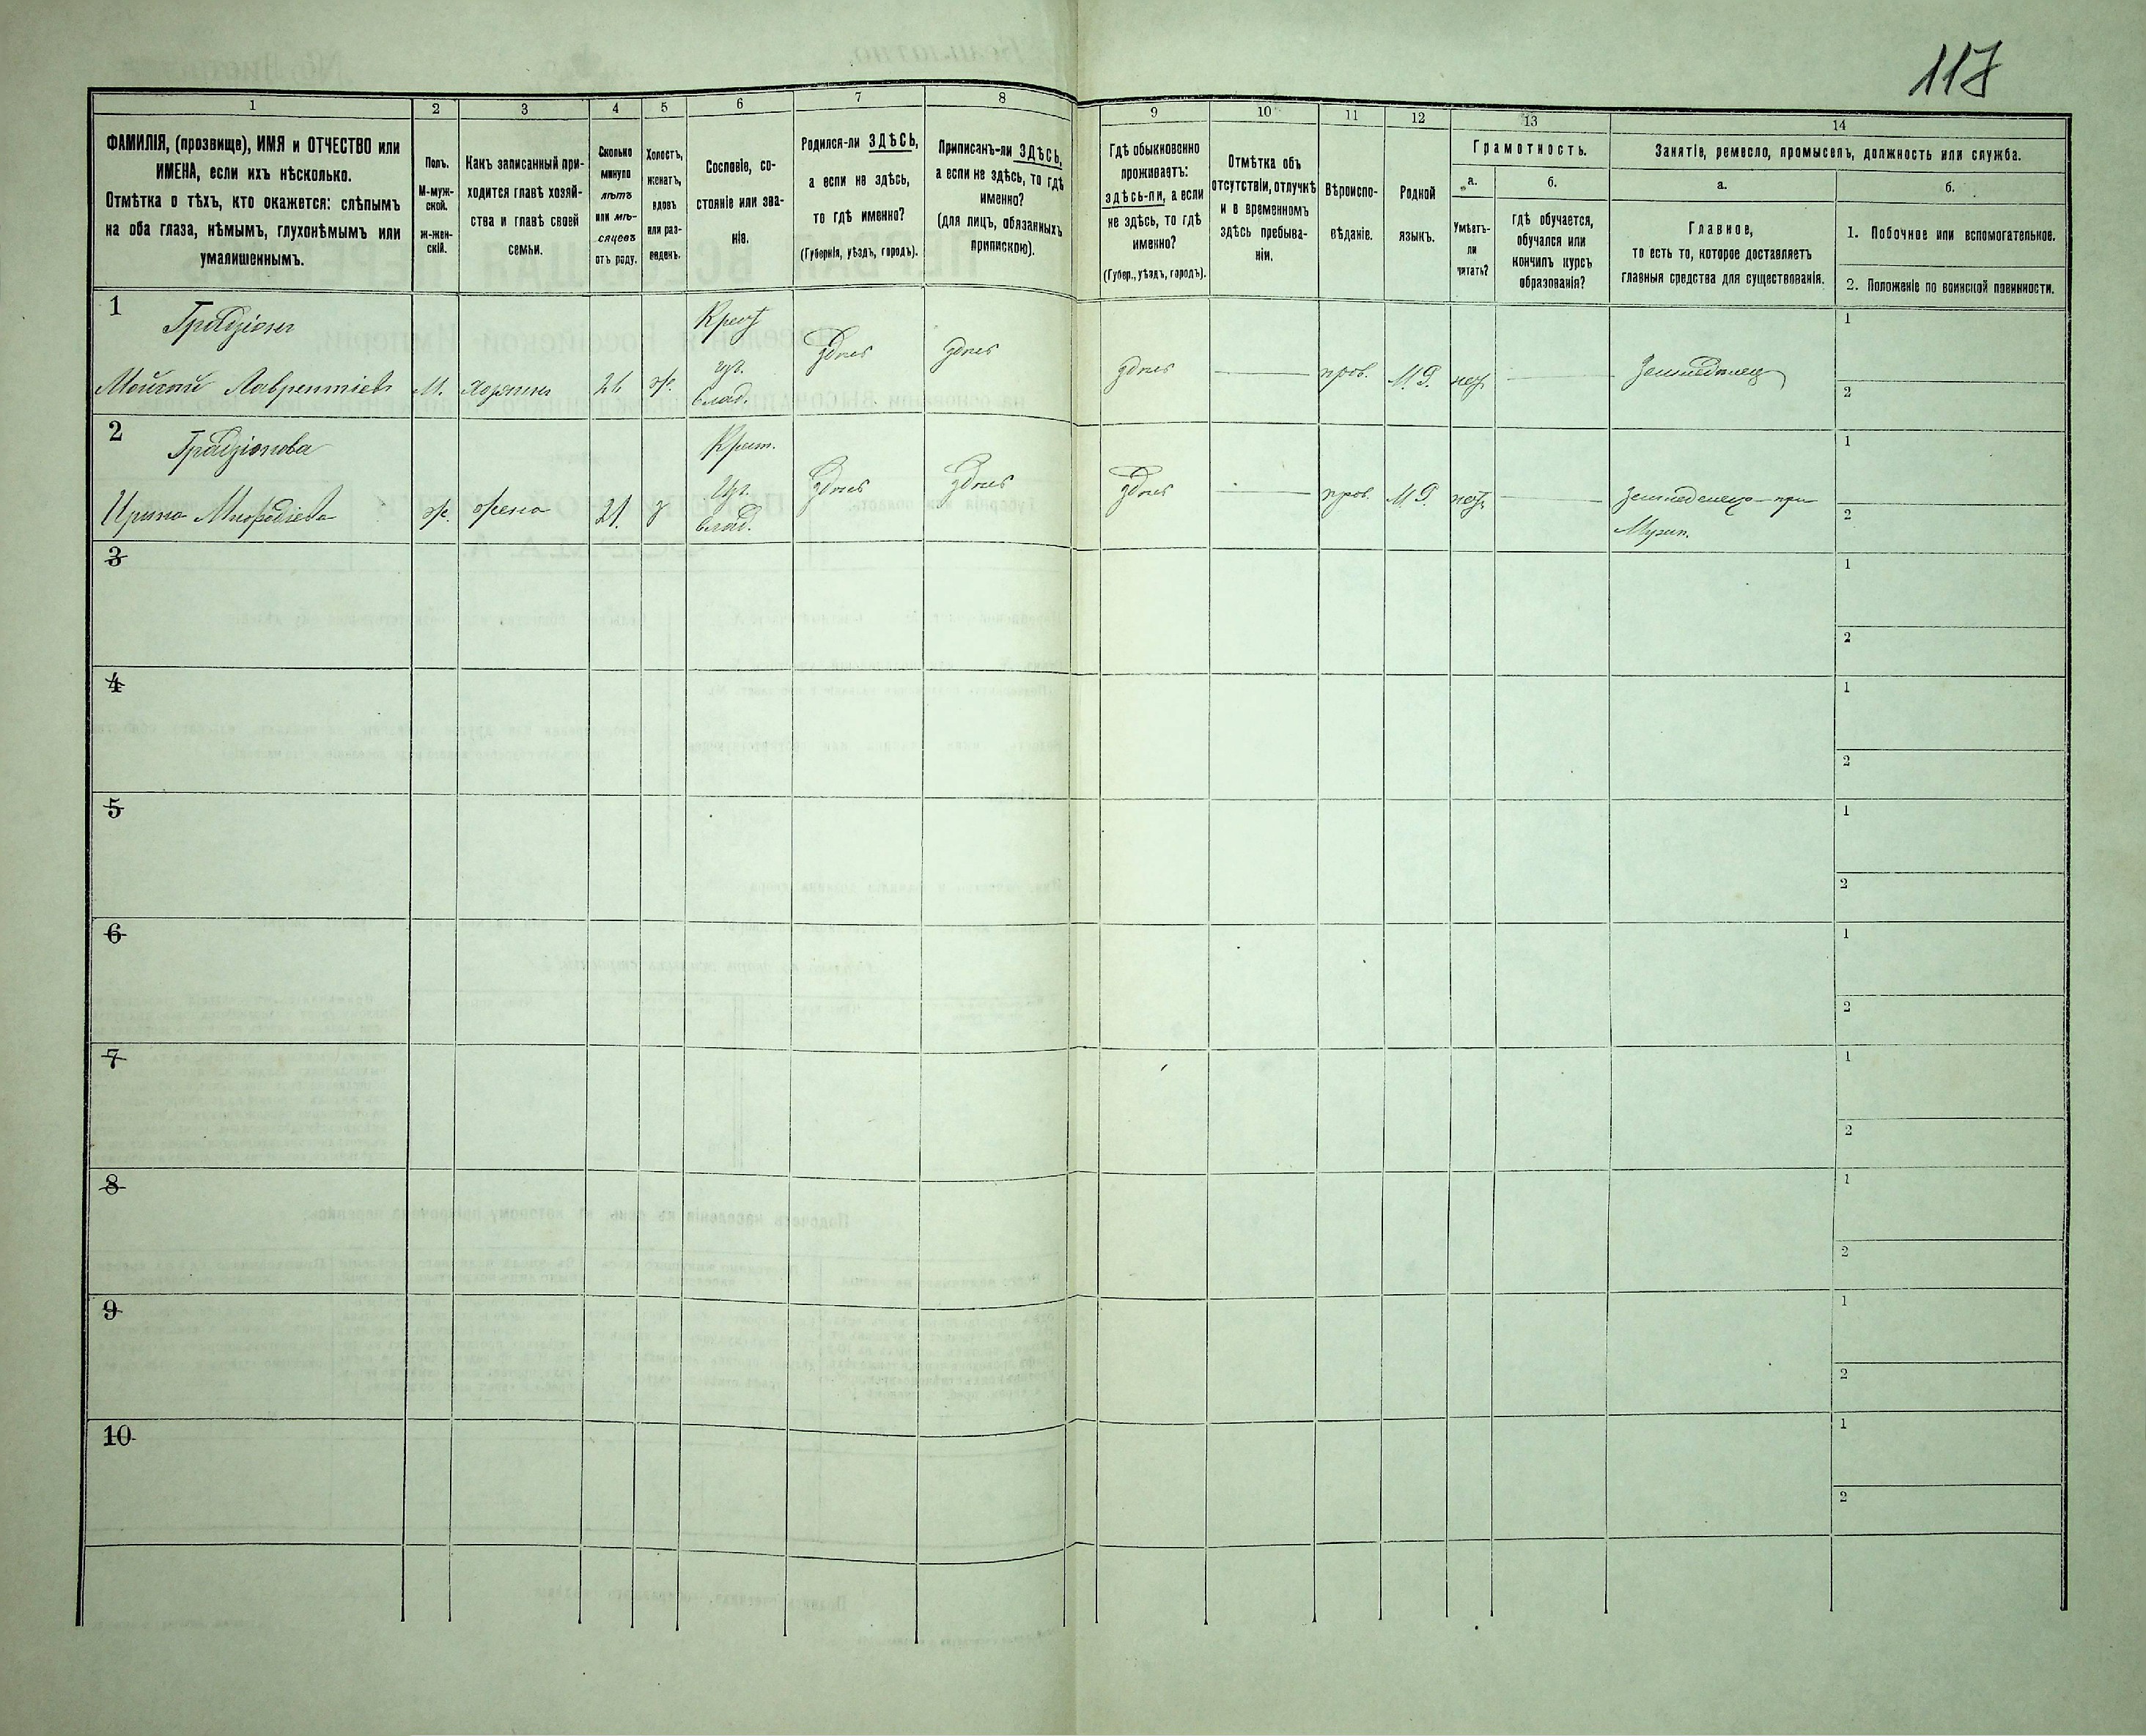 117
1 2 3 4 5 6 7 8 9 10 11 12 13 14
ФАМИЛІЯ, (прозвище), ИМЯ и ОТЧЕСТВО или
ИМЕНА, если ихъ нѣсколько.
Отмѣтка о тѣхъ, кто окажется: слѣпымъ
на оба глаза, нѣмымъ, глухонѣмымъ или
умалишеннымъ.
Полъ.
М-муж-
ской.
ж-жен-
скій.
Какъ записанный при-
ходится главѣ хозяй-
ства и главѣ своей
семьи.
Сколько
минуло
лѣтъ
или мѣ-
сяцевъ
отъ роду.
Холостъ,
женатъ,
вдовъ
или раз-
веденъ.
Сословіе, со-
стояніе или зва-
ніе.
Родился-ли ЗДѢСЬ,
а если не здѣсь,
то гдѣ именно?
(Губернія, уѣздъ, городъ).
Приписанъ-ли ЗДѢСЬ,
а если не здѣсь, то гдѣ
именно?
(для лицъ, обязанныхъ
припискою).
Гдѣ обыкновенно
проживаетъ:
здѣсь-ли, а если
не здѣсь, то гдѣ
именно?
(Губер., уѣздъ, городъ).
Отмѣтка объ
отсутствіи, отлучкѣ
и о временномъ
здѣсь пребыва-
ніи.
Вѣроиспо-
вѣданіе.
Родной
языкъ.
Грамотность.
а.
Умѣетъ-
ли
читать?
б.
гдѣ обучается,
обучался или
кончилъ курсъ
образованія?
Занятіе, ремесло, промыселъ, должность или служба.
а.
Главное,
то есть то, которое доставляетъ
главныя средства для существованія.
б.
1. Побочное или вспомогательное.
2. Положеніе по воинской повинности.
1
Мойсей Лаврентіевъ М. хозяинъ ж. влад. здѣсь здѣсь здѣсь прав. нѣтъ Земледѣлец
1
2
2
Ирина ж. жена 21 з влад. здѣсь здѣсь здѣсь прав. нѣтъ
1
2
3
1
2
4
1
2
5
1
2
6
1
2
7
1
2
8
1
2
9
1
2
10
1
2